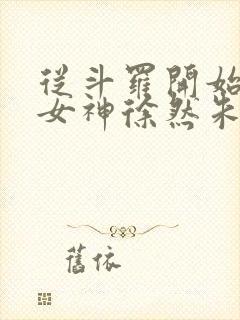 從斗羅開始
女神徐然朱
舊依